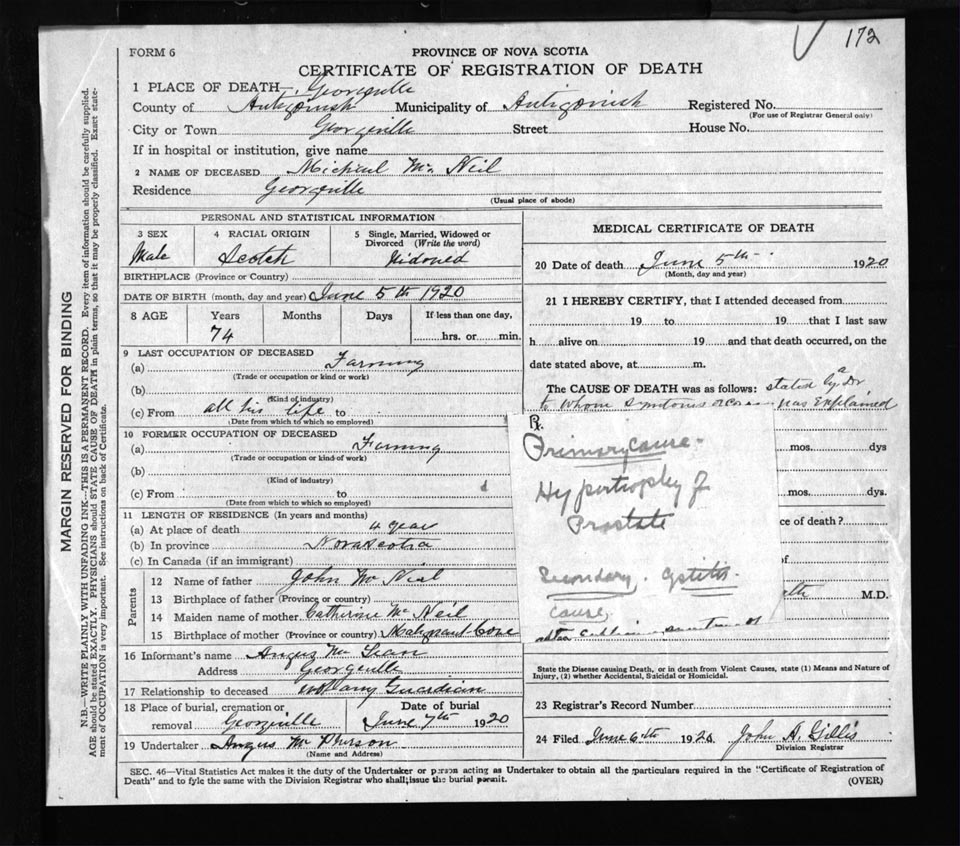 172
FORM 6
PROVINCE OF NOVA SCOTIA
CERTIFICATE OF REGISTRATION OF DEATH
1 PLACE OF DEATH—Georgeville
County of Antigonish Municipality of Antigonish Registered No.
(For use of Registrar General only)
City or Town Georgeville Street House No.
If in hospital or institution, give name
2 NAME OF DECEASED Micheal Mc Neil
Residence Georgeville
(Usual place of abode)
PERSONAL AND STATISTICAL INFORMATION
3 SEX 4 RACIAL ORIGIN 5 Single, Married, Widowed or Divorced (Write the word)
Male Scotch Widowed
BIRTHPLACE (Province or Country)
DATE OF BIRTH (month, day and year) June 5th 1920
8 AGE Years Months Days If less than one day,
74 hrs. or min.
9 LAST OCCUPATION OF DECEASED
(a) Farming
(Trade or occupation or kind or work)
(b)
(Kind of industry)
(c) From all his life to
(Date from which to which so employed)
10 FORMER OCCUPATION OF DECEASED
(a) Farming
(Trade or occupation or kind of work)
(b)
(Kind of industry)
(c) From to
(Date from which to which so employed)
11 LENGTH OF RESIDENCE (In years and months)
(a) At place of death 4 year
(b) In province Nova Scotia
(c) In Canada (if an immigrant)
Parents
12 Name of father John Mc Neil
13 Birthplace of father (Province or country)
14 Maiden name of mother Catherine Mc Neil
15 Birthplace of mother (Province or country) Malignant Cove
16 Informant's name Angus Mc Lean
Address Georgeville
17 Relationship to deceased Guardian
18 Place of burial, cremation or removal Georgeville Date of burial June 7th 1920
19 Undertaker Angus Mc Pherson
(Name and Address)
MEDICAL CERTIFICATE OF DEATH
20 Date of death June 5th 1920
(Month, day and year)
21 I HEREBY CERTIFY, that I attended deceased from
19 to 19 that I last saw
h alive on 19 and that death occurred, on the
date stated above, at m.
The CAUSE OF DEATH was as follows: stated by a Dr.
to whom was explained
Rx
Primary cause -
Hypertrophy of
Prostate
Secondary. Cystitis.
cause
mos. dys
mos. dys.
ce of death?
of
M.D.
State the Disease causing Death, or in death from Violent Causes, state (1) Means and Nature of
Injury, (2) whether Accidental, Suicidal or Homicidal.
23 Registrar's Record Number
24 Filed June 6th 1920 John A. Gillis
Division Registrar
SEC. 46—Vital Statistics Act makes it the duty of the Undertaker or person acting as Undertaker to obtain all the particulars required in the "Certificate of Registration of
Death" and to fyle the same with the Division Registrar who shall issue the burial permit. (OVER)
MARGIN RESERVED FOR BINDING
N.B.—WRITE PLAINLY WITH UNFADING INK—THIS IS A PERMANENT RECORD. Every item of information should be carefully supplied.
AGE should be stated EXACTLY. PHYSICIANS should STATE CAUSE OF DEATH in plain terms, so that it may be properly classified. Exact state-
ment of OCCUPATION is very important. See instructions on back of Certificate.